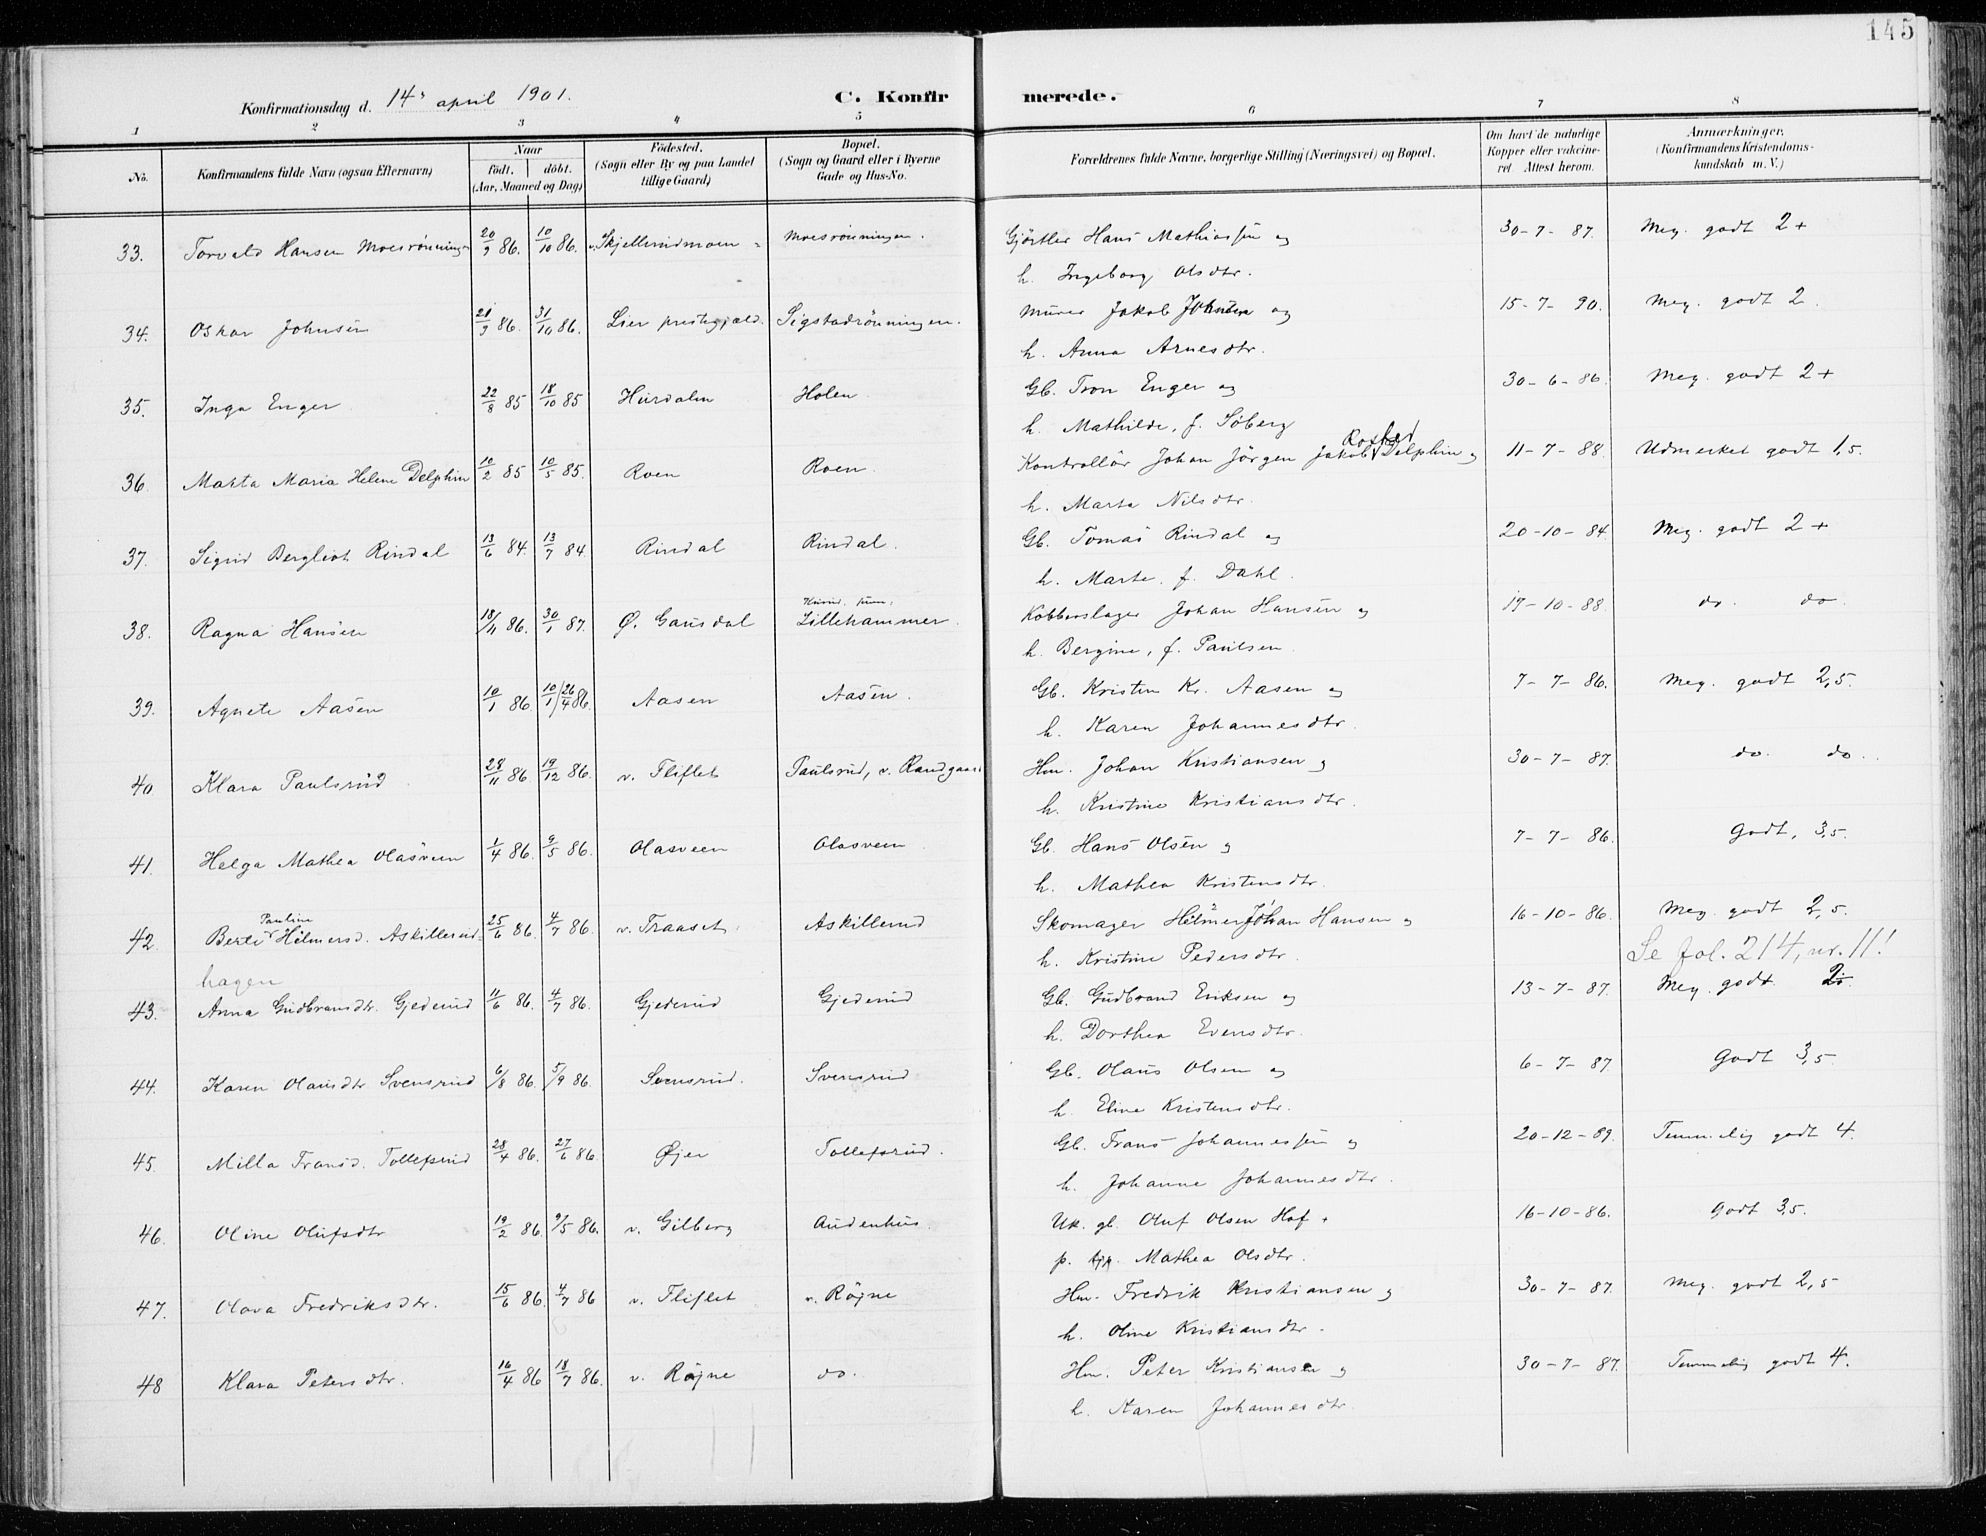 145
Konfirmationsdag d. 14de april 1901.
C. Konfirmerede.
1 2 3 4 5 6 7 8
No.
Konfirmandens fulde Navn (ogsaa Efternavn)
Naar
født. døbt.
(Aar, Maaned og Dag)
Fødested.
(Sogn eller By og paa Landet
tillige Gaard)
Bopæl.
(Sogn og Gaard eller i Byerne
Gade og Hus-No.
Forældrenes fulde Navne, borgerlige Stilling (Næringsvei) og Bopæl.
Om havt de naturlige
Kopper eller vaccine-
ret. Attest herom.
Anmærkninger.
(Konfirmandens Kristendoms-
kundskab m. V.)
33. Torvald Hansen Moesrønningen 20/9 86. 10/10 86. v. Skjellerudmoen Moesrønningen. Gjørtler Hans Mathiassen og 30-7-87. Meg. godt 2+
h. Ingeborg Olsdtr.
34. Oskar Johnsen 21/9 86. 31/10 86. Lier prestegjæld. Sigstadrønningen. Murer Jakob Johnsen og 15-7-90. Meg. godt 2.
h. Anna Arnesdtr.
35. Inga Enger 22/8 85 18/10 85 Hurdalen Holen. Gb. Tron Enger og 30-6-86. Meg. godt 2+
h. Mathilde, f. Søberg
36. Marta Maria Helene Delphin 10/2 85 10/5 85. Roen Roen. Kontrollør Johan Jörgen Jakob Delphin og 11-7-88. Udmerket godt 1,5.
h. Marta Nilsdtr.
37. Sigrid Bergliot Rindal 13/6 84. 13/7 84. Rindal Rindal. Gb. Tomas Rindal og 20-10-84. Meg. godt 2+
h. Marte, f. Dahl.
38. Ragna Hansen 18/11 86. 30/1 87. Ø. Gausdal Lillehammer. Kobberslager Johan Hansen og 17-10-88. do. do.
h. Bergine, f. Paulsen.
39. Agnete Aasen 10/1 86 10/1 26/4 86. Aasen Aasen. Gb. Kristen Kr. Aasen og 7-7-86. Meg. godt 2,5.
h. Karen Johannesdtr.
40 Klara Paulsrud 28/11 86 19/12 86. v. Fliflet Paulsrud, v. Randgaard Hm. Johan Kristiansen og 30-7-87. do. do.
h. Kristine Kristiansdtr.
41. Helga Mathea Olasveen 1/4 86. 9/5 86. Olasveen Olasveen. Gb. Hans Olsen og 7-7-86. Godt, 3,5.
h. Mathea Kristensdtr.
Pauline
42. Berte Hilmersd. Askillerud 25/6 86. 4/7 86. v. Traaset. Askillerud Skomager Hilmer Johan Hansen og 16-10-86. Meg. godt 2,5.
hagen h. Kristine Pedersdtr. Se fol. 214, nr. 11!
43. Anna Gudbransdtr. Gjederud 11/6 86. 4/7 86. Gjederud Gjederud Gb. Gudbrand Eriksen og 13-7-87. Meg. godt
h. Dorthea Evensdtr.
44. Karen Olausdtr. Svensrud 6/8 86. 5/9 86. Svensrud. Svensrud Gb. Olaus Olsen og 6-7-87 Godt 3,5
h. Eline Kristensdtr.
45. Milla Fransd. Tollefsrud 28/4 86. 27/6 86. Øjer Tollefsrud. Gb. Frans Johannessen og 20-12-89. Temmelig godt 4.
h. Johanne Johannesdtr.
46. Oline Olufsdtr 19/2 86 9/5 86. v. Gilberg Audenhus. Uk. gl. Oluf Olsen Hof + 16-10-86. Godt 3,5.
p. Mathea Olsdtr.
47. Olava Fredriksdtr. 15/6 86. 4/7 86 v. Fliflet v. Røjne Hm. Fredrik Kristiansen og 30-7-87. Meg. godt 2,5
h. Oline Kristiansdtr.
48 Klara Petersdtr. 16/4 86 18/7 86. v. Røjne do. Hm. Peter Kristiansen og 30-7-87. Temmelig godt 4.
h. Karen Johannesdtr.